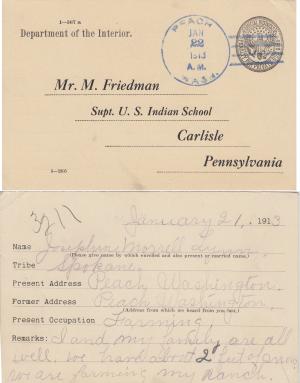 1—567 a
Department of the Interior.
PEACH
JAN
22
1913
A.M.
WASH.
Mr. M. Friedman
Supt. U. S. Indian School
Carlisle
Pennsylvania
3711
January 21, 1913
Name Josephine Morrell
(Please give name by which enrolled and also present or married name.)
Tribe Spokane.
Present Address Peach Washington.
Former Address Peach Washington.
(Address from which we heard from you last.)
Present Occupation Farming,
Remarks: I and my family are all
well. we have about 2 of snow
we are farming my Ranch.